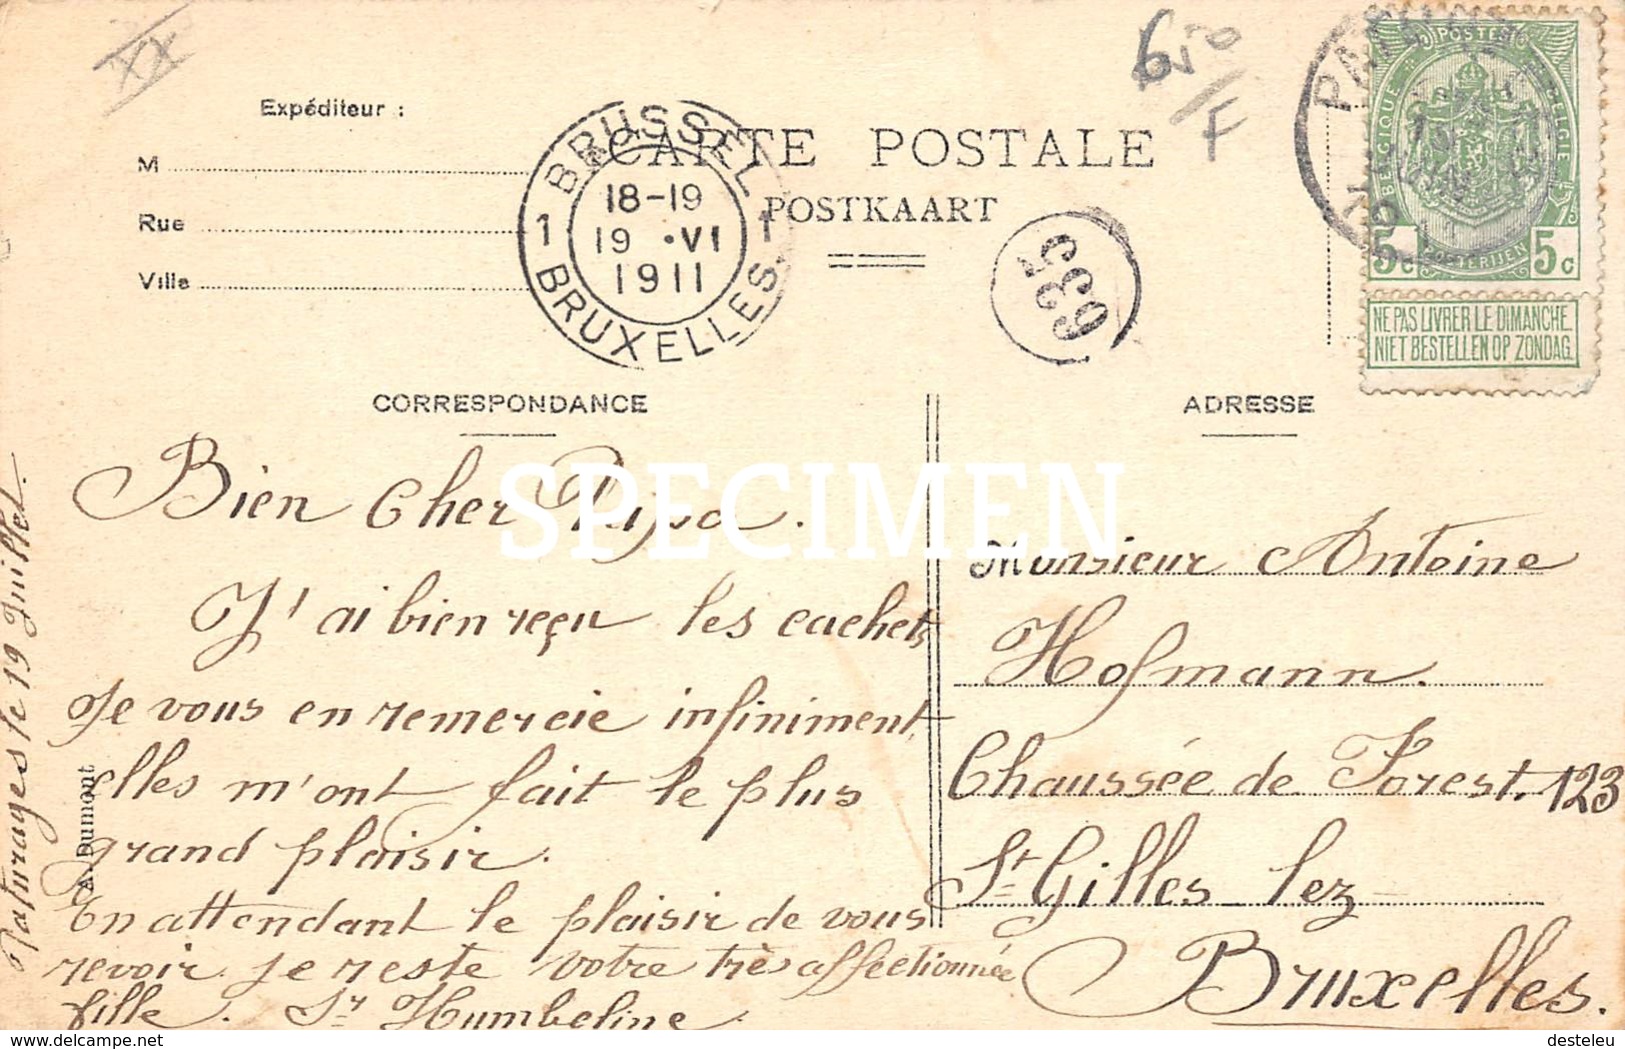 XX
650
F
Expéditeur :
CARTE POSTALE
POSTKAART
M
Rue
Ville
1 BRUSSEL 1
18-19
19 ·VI
1911
BRUXELLES.
635
BELGIQUE POSTES BELGIE
5c POSTERIJEN 5c
NE PAS LIVRER LE DIMANCHE
NIET BESTELLEN OP ZONDAG.
CORRESPONDANCE
ADRESSE
SPECIMEN
Bien Cher Papa.
J'ai bien reçu les cachets
Je vous en remercie infiniment,
elles m'ont fait le plus
grand plaisir.
En attendant le plaisir de vous
revoir je reste votre très affectionnée
fille. Sr Humbeline.
Monsieur Antoine
Hofmann.
Chaussée de Forest. 123
St Gilles lez
Bruxelles.
Paturages le 19 Juillet.
A. Dumont
www.delcampe.net
desteleu